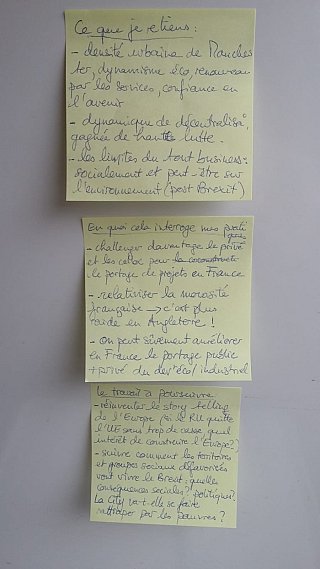 Ce que je retiens :
- densité urbaine de Manches
ter, dynamisme éco, renouveau
par les services, confiance en
l'avenir
- dynamique de décentralisa°,
gagnée de haute lutte.
- les limites du tout business :
socialement et peut-être sur
l'environnement (post Brexit)
En quoi cela interroge mes prati
ques
- challenger davantage le privé
et les colloc pour la coconstruire
le portage de projets en France
- relativiser la morosité
française → c'est plus
raide en Angleterre !
- on peut sûrement améliorer
en France le portage public
+ privé du dev' éco / industriel
Le travail à poursuivre
- réinventer le story telling
de l'Europe (si le RU quitte
l'UE sans trop de casse quel
intérêt de construire l'Europe ?)
- suivre comment les territoires
et groupes sociaux défavorisés
vont vivre le Brexit : quelles
conséquences sociales ? politiques ?
La City va-t-elle se faire
rattraper par les pauvres ?